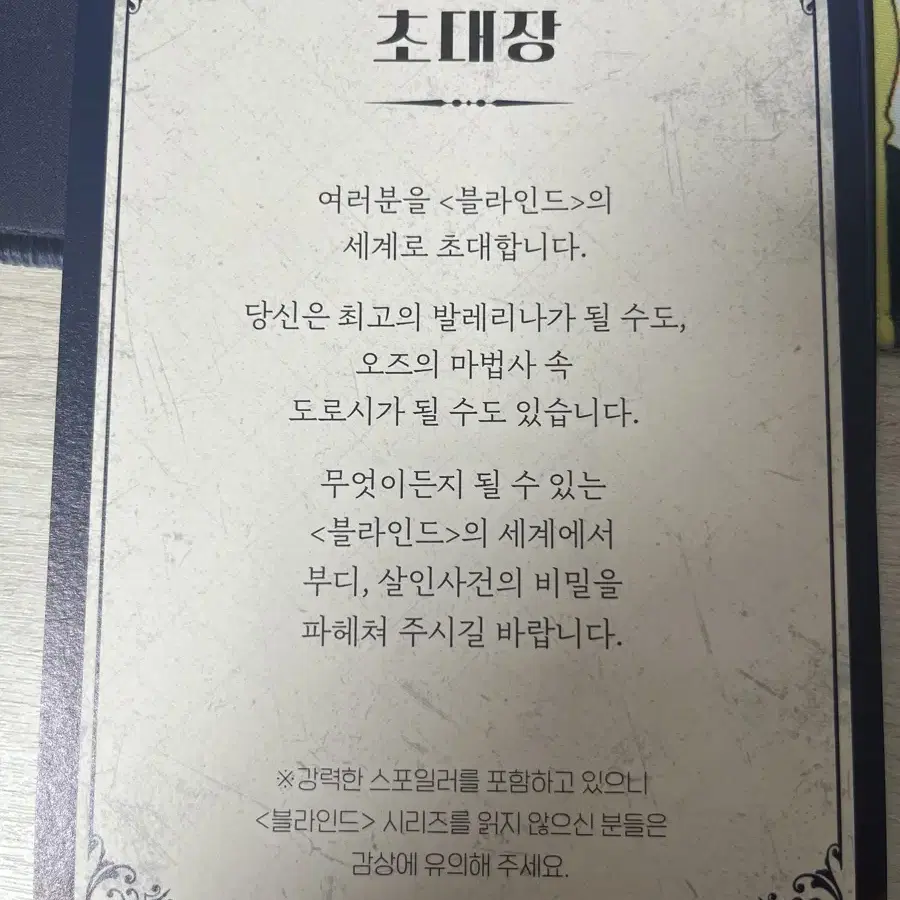 초대장
여러분을 <블라인드>의
세계로 초대합니다.
당신은 최고의 발레리나가 될 수도,
오즈의 마법사 속
도로시가 될 수도 있습니다.
무엇이든지 될 수 있는
<블라인드>의 세계에서
부디, 살인사건의 비밀을
파헤쳐 주시길 바랍니다.
※강력한 스포일러를 포함하고 있으니
<블라인드> 시리즈를 읽지 않으신 분들은
감상에 유의해 주세요.